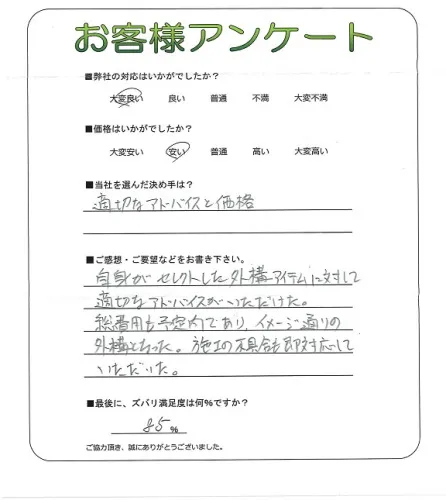 お客様アンケート
■弊社の対応はいかがでしたか?
大変良い 良い 普通 不満 大変不満
■価格はいかがでしたか?
大変安い 安い 普通 高い 大変高い
■当社を選んだ決め手は?
適切なアドバイスと価格
■ご感想・ご要望などをお書き下さい。
自身がセレクトした外構アイテムに対して
適切なアドバイスがいただけた。
総費用も予定内であり、イメージ通りの
外構となった。施工の不具合も即対応して
いただいた。
■最後に、ズバリ満足度は何%ですか?
85%
ご協力頂き、誠にありがとうございました。